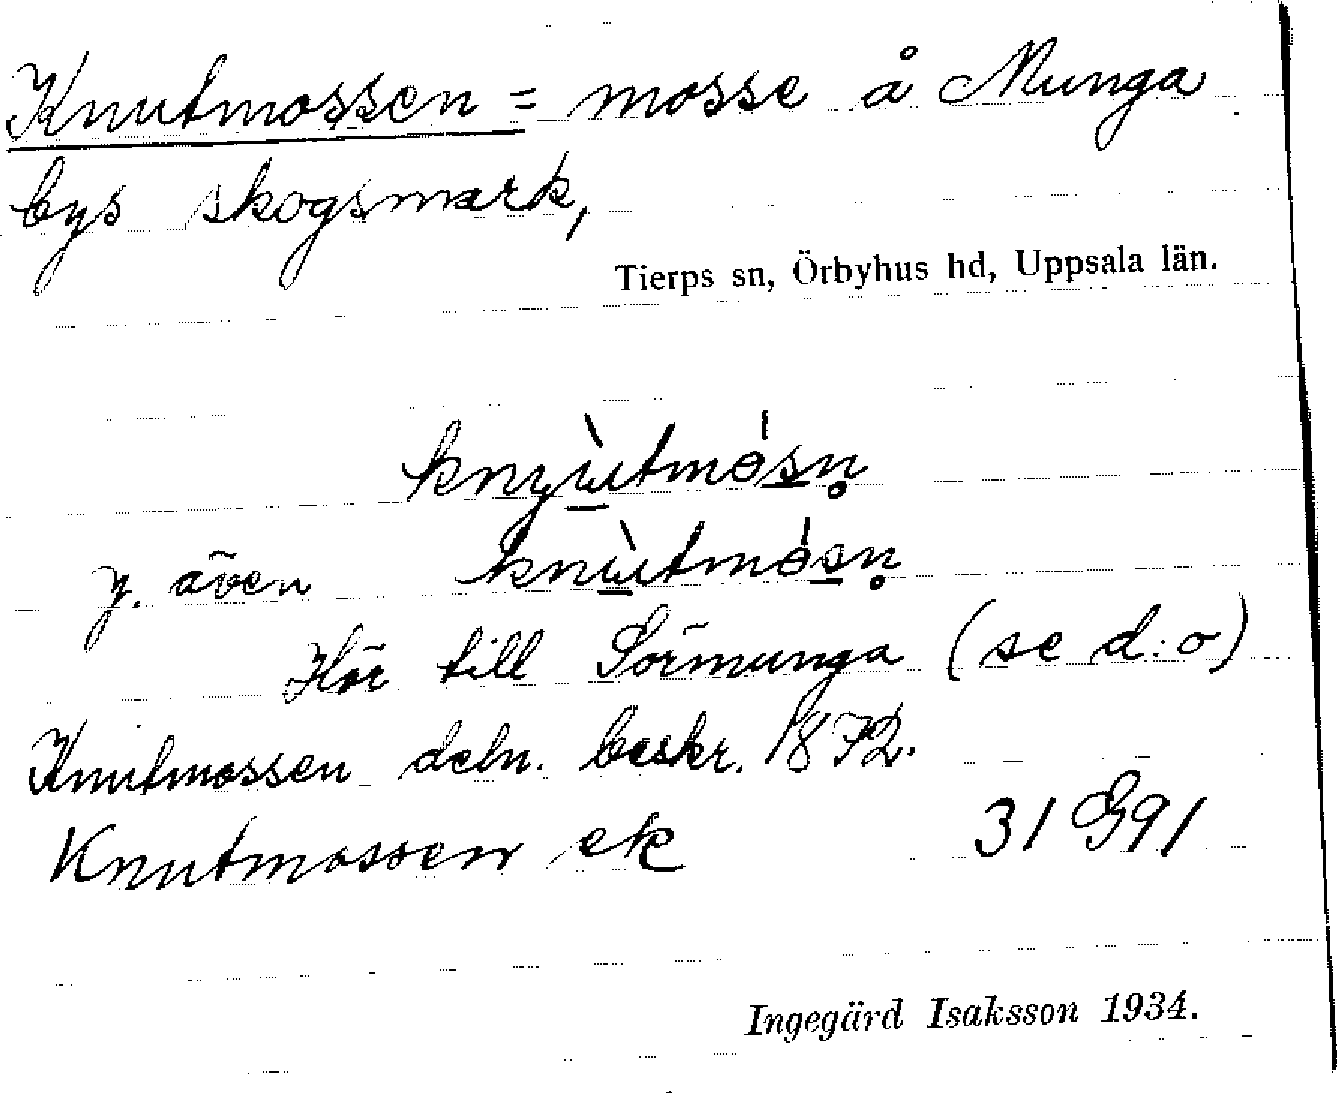 Knutmossen = mosse å Munga
bys skogsmark,
Tierps sn, Örbyhus hd, Uppsala län.
y. även
Hör till Sörmunga (se d:o)
Knutmossen deln. beskr. 1872.
Knutmossen ek 31 G91
Ingegärd Isaksson 1934.